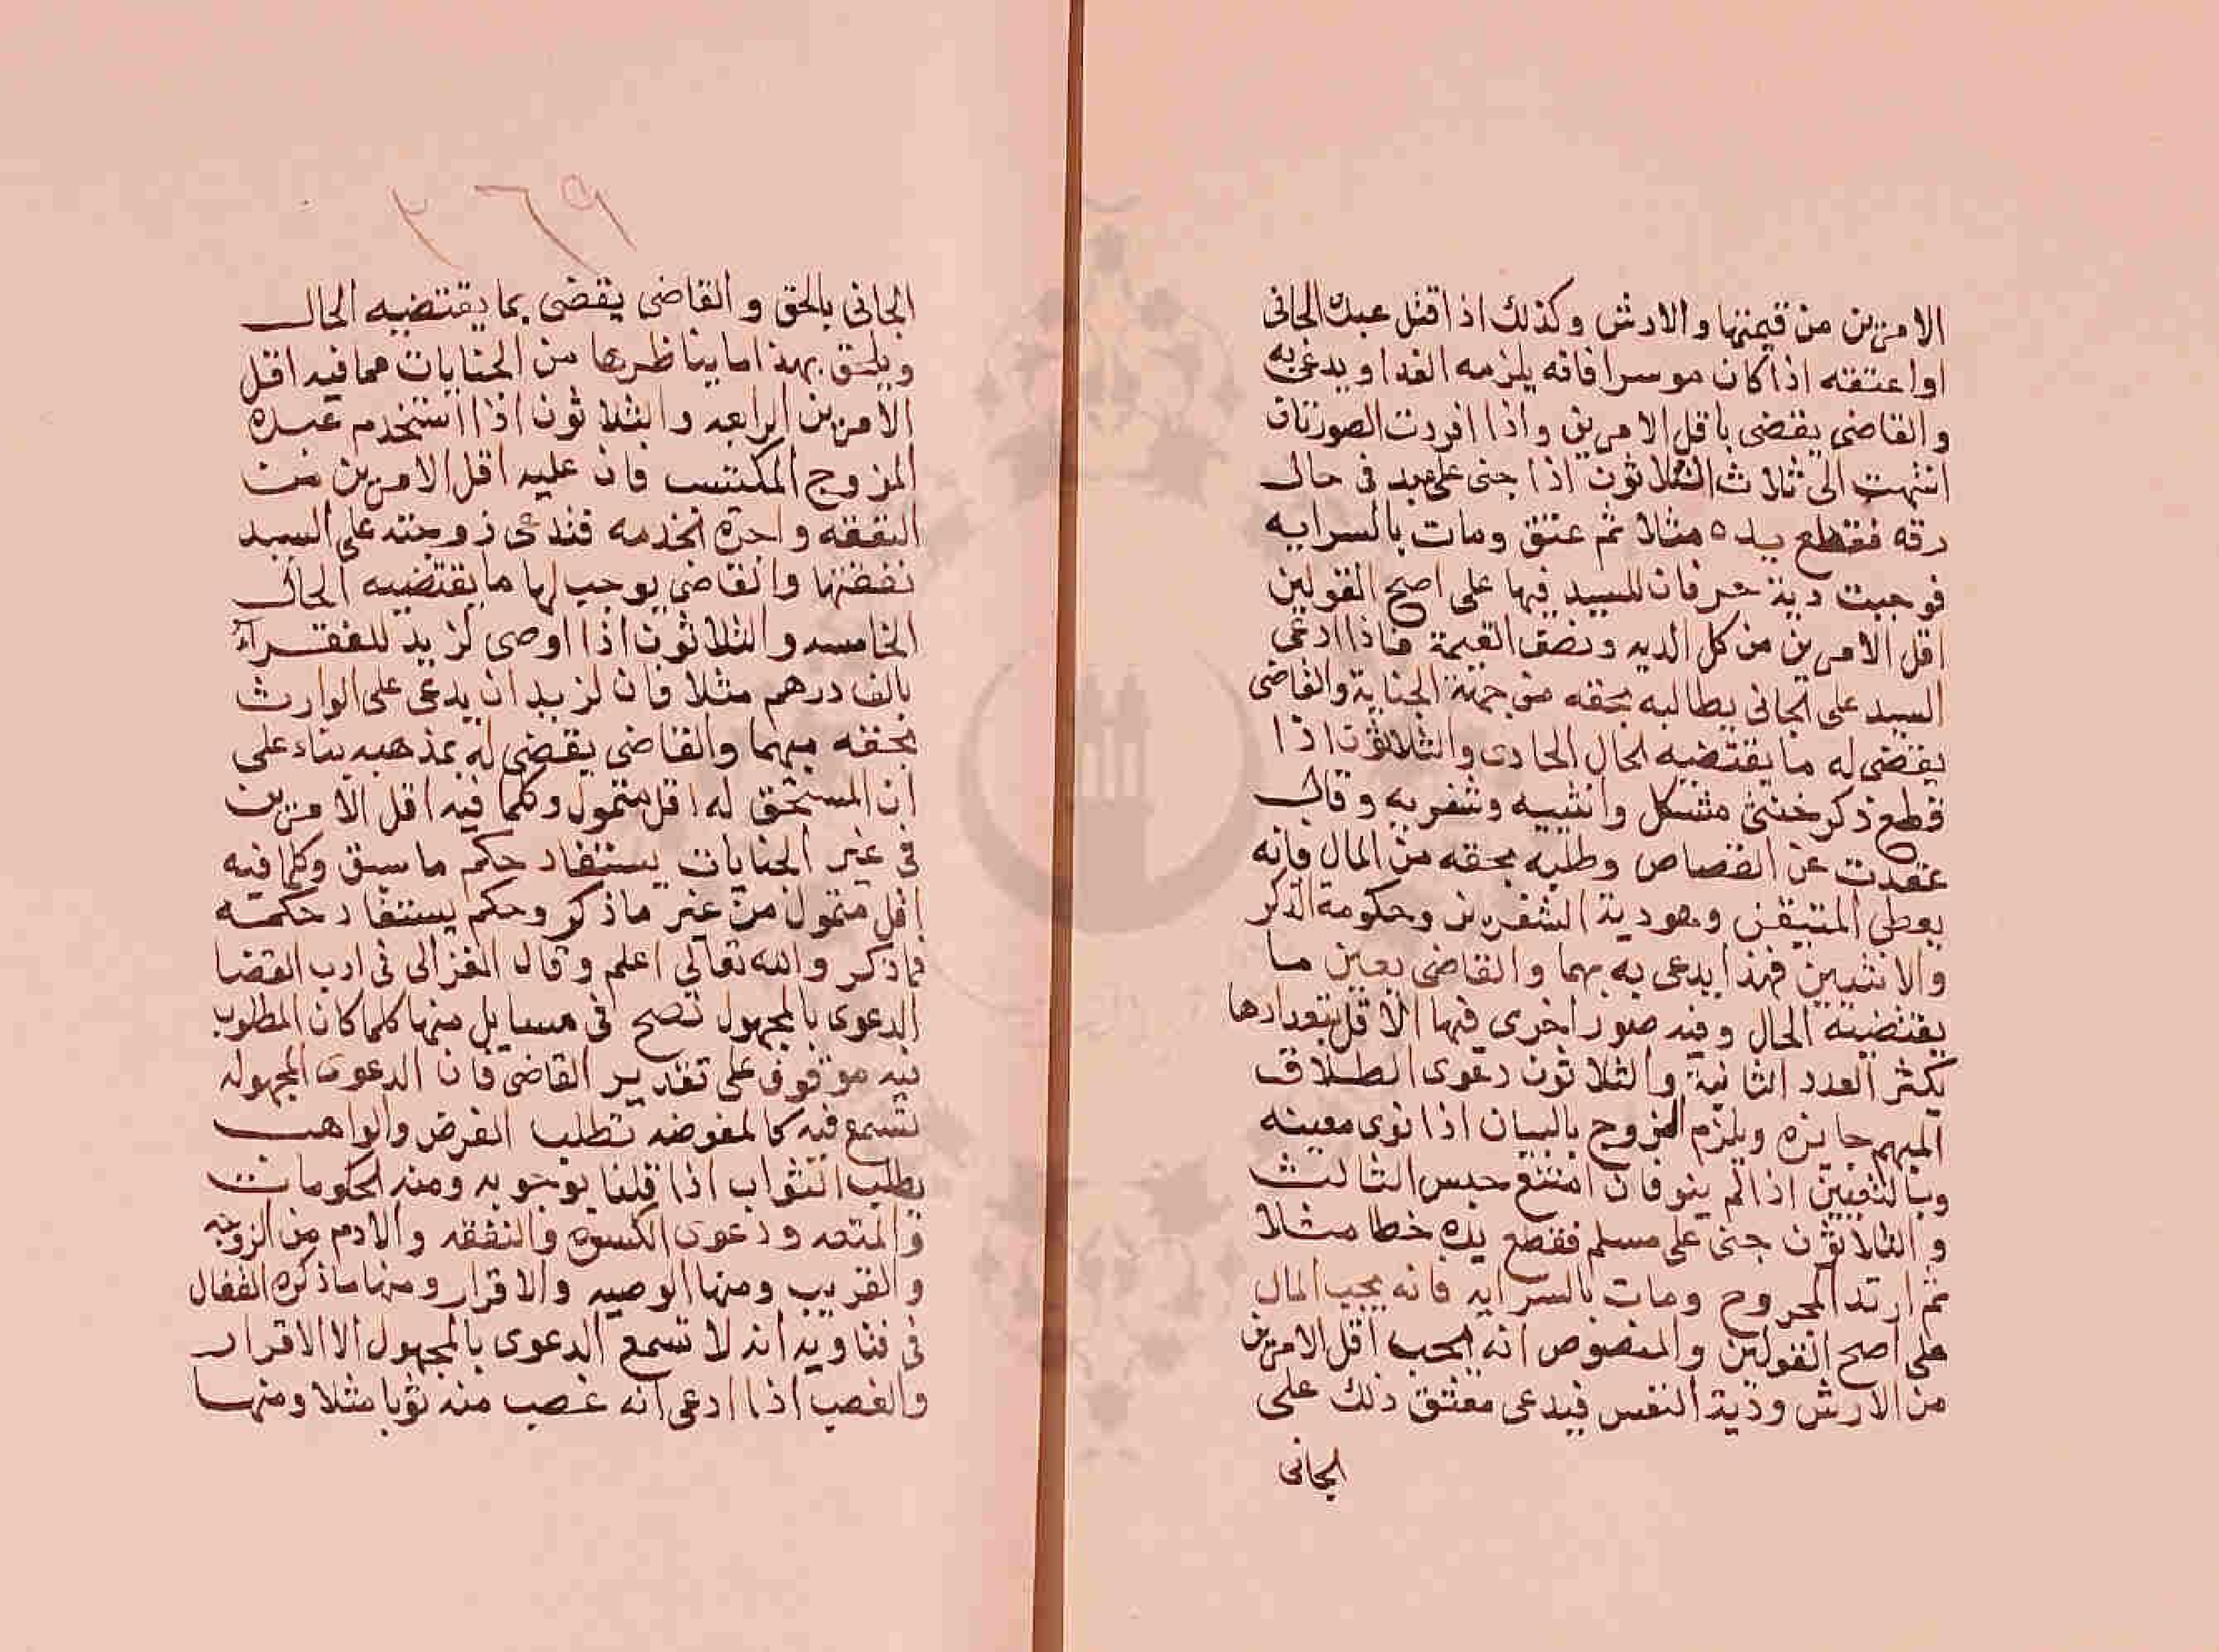 الامرين من قيمتها والارش وكذلك اذا قتل عبده الجانى
او اعتقه اذا كان موسرا فانه يلزمه الفدا ويدعى به
والقاضى يقضى باقل الامرين واذا افردت الصورتان
انتهت الى ثلاث الثلاثون اذا جنى على عبد فى حال
رقه فقطع يده مثلا ثم عتق ومات بالسرايه
فوجبت دية حر فان للسيد فيها على اصح القولين
اقل الامرين من كل الديه ونصف القيمة فاذا ادعى
السيد على الجانى يطالبه بحقه من جهة الجناية والقاضى
يقضى له ما يقتضيه الحال الحادى والثلاثون اذا
قطع ذكر خنثى مشكل وانثييه وشفريه وقال
عفوت عن القصاص وطلبه بحقه من المال فانه
يعطى المتيقن وهو دية الشفرين وحكومة الذكر
والانثيين فهذا يدعى به بهما والقاضى يعين ما
يقتضية الحال وفيه صور اخرى فيها الاقل بتعدادها
يكثر العدد الثانية والثلاثون دعوى الطلاق
المبهم جائزه ويلزم الزوج بالبيان اذا نوى معينه
وبالتعيين اذا لم ينو فان امتنع حبس الثالث
والثلاثون جنى على مسلم فقطع يده خطا مثلا
ثم ارتد المجروح ومات بالسرايه فانه يجب المال
على اصح القولين والمنصوص انه يجب اقل الامرين
من الارش ودية النفس فيدعى معتق ذلك على
الجانى
٢٦٩
الجانى بالحق والقاضى يقضى بما يقتضيه الحال
ويلحق بهذا ما يناظرها من الجنايات مما فيه اقل
الامرين الرابعه والثلاثون اذا استخدم عبده
المزوج المكتسب فان عليه اقل الامرين من
النفقه واجرة الخدمه فتدعى زوجته على السيد
نفقتها والقاضى يوجب لها ما يقتضيه الحال
الخامسه والثلاثون اذا اوصى لزيد للفقرآء
بالف درهم مثلا فان لزيد ان يدعى على الوارث
بحقه منهما والقاضى يقضى له بمذهبه بناء على
ان المستحق له اقل متمول وكلما فيه اقل الامرين
فى غير الجنايات يستفاد حكمه ما سبق وكلما فيه
اقل متمول من غير ما ذكر وحكم يستفاد حكمه
مما ذكر والله تعالى اعلم وقال الغزالى فى ادب القضا
الدعوى بالمجهول تصح فى مسايل منها كلما كان المطلوب
فيه موقوف على تقدير القاضى فان الدعوى المجهوله
تسمع فيه كالمفوضه تطلب الفرض والواهب
يطلب الثواب اذا قلنا بوجوبه ومنه الحكومات
والمتعه ودعوى الكسوه والنفقه والادم من الزوجه
والقريب ومنها الوصيه والاقرار ومنها ما ذكره القفال
فى فتاويه انه لا تسمع الدعوى بالمجهول الا الاقرار
والغصب اذا ادعى انه غصب منه ثوبا مثلا ومنها